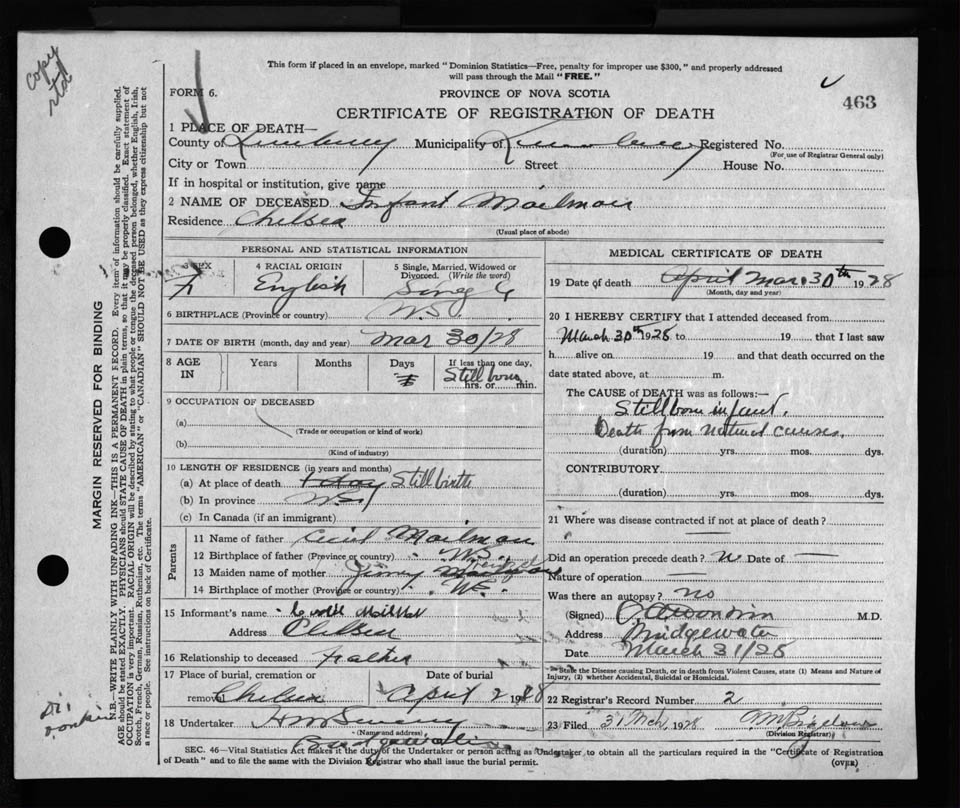 copy
rtd
This form if placed in an envelope, marked "Dominion Statistics—Free, penalty for improper use $300," and properly addressed
will pass through the Mail "FREE."
FORM 6.
PROVINCE OF NOVA SCOTIA
463
CERTIFICATE OF REGISTRATION OF DEATH
1 PLACE OF DEATH—
County of Lunenburg Municipality of Lunenburg Registered No.
(For use of Registrar General only)
City or Town Street House No.
If in hospital or institution, give name
2 NAME OF DECEASED Infant Mailman
Residence Chelsea
(Usual place of abode)
PERSONAL AND STATISTICAL INFORMATION
3 SEX
F
4 RACIAL ORIGIN
English
5 Single, Married, Widowed or
Divorced. (Write the word)
Single
6 BIRTHPLACE (Province or country) N.S.
7 DATE OF BIRTH (month, day and year) Mar 30/28
8 AGE
IN
Years Months Days
If less than one day,
Still born
hrs. or min.
9 OCCUPATION OF DECEASED
(a)
(Trade or occupation or kind of work)
(b)
(Kind of industry)
10 LENGTH OF RESIDENCE (in years and months)
(a) At place of death Stillbirth
(b) In province N.S.
(c) In Canada (if an immigrant)
Parents
11 Name of father Cecil Mailman
12 Birthplace of father (Province or country) N.S.
13 Maiden name of mother
14 Birthplace of mother (Province or country) N.S.
15 Informant's name Cecil Mailman
Address Chelsea
16 Relationship to deceased Father
17 Place of burial, cremation or
removal Chelsea April 2 1928
18 Undertaker
(Name and address)
Bridgewater
MEDICAL CERTIFICATE OF DEATH
19 Date of death April Mar. 30th 1928
(Month, day and year)
20 I HEREBY CERTIFY that I attended deceased from
March 30th 1928 to 19 that I last saw
h alive on 19 and that death occurred on the
date stated above, at m.
The CAUSE of DEATH was as follows:—
Stillborn infant.
Death from natural causes.
(duration) yrs. mos. dys.
CONTRIBUTORY.
(duration) yrs. mos. dys.
21 Where was disease contracted if not at place of death?
Did an operation precede death? no Date of
Nature of operation
Was there an autopsy? no
(Signed) M.D.
Address Bridgewater
Date March 31/28
State the Disease causing Death, or in death from Violent Causes, state (1) Means and Nature of
Injury, (2) whether Accidental, Suicidal or Homicidal.
22 Registrar's Record Number 2
23 Filed 31 Mch, 1928
(Division Registrar)
SEC. 46—Vital Statistics Act makes it the duty of the Undertaker or person acting as Undertaker to obtain all the particulars required in the "Certificate of Registration
of Death" and to file the same with the Division Registrar who shall issue the burial permit.
(OVER)
MARGIN RESERVED FOR BINDING
N.B.—WRITE PLAINLY WITH UNFADING INK—THIS IS A PERMANENT RECORD. Every item of information should be carefully supplied.
AGE should be stated EXACTLY. PHYSICIANS should STATE CAUSE OF DEATH in plain terms, so that it may be properly classified. Exact statement of
OCCUPATION is very important. RACIAL ORIGIN will be described by stating to what people or tongue the deceased person belonged, whether English, Irish,
Scotch, French, German, Russian, Ruthenian, etc. The terms "AMERICAN" or "CANADIAN" SHOULD NOT BE USED as they express citizenship but not
a race or people. See instructions on back of Certificate.